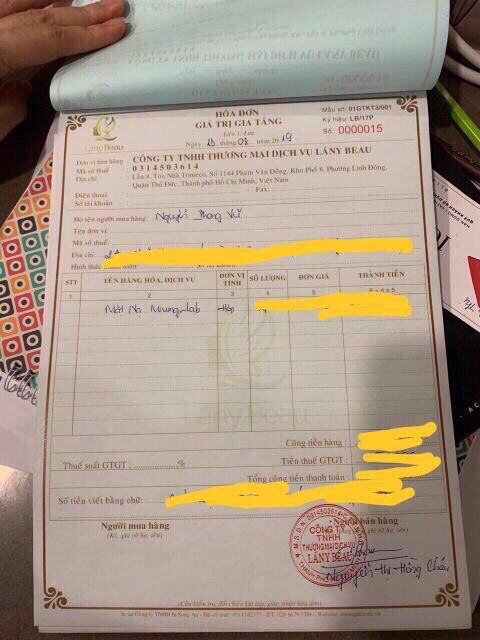 HÓA ĐƠN
GIÁ TRỊ GIA TĂNG
Liên 1: Lưu
Ngày 15 tháng 08 năm 2019
Mẫu số: 01GTKT3/001
Ký hiệu: LB/17P
Số: 0000015
Lany Beau
Đơn vị bán hàng: CÔNG TY TNHH THƯƠNG MẠI DỊCH VỤ LÁNY BEAU
Mã số thuế: 0314503614
Địa chỉ: Lầu 4, Toà Nhà Tomeco, Số 1144 Phạm Văn Đồng, Khu Phố 8, Phường Linh Đông,
Quận Thủ Đức, Thành phố Hồ Chí Minh, Việt Nam
Điện thoại: Fax:
Số tài khoản:
Họ tên người mua hàng: Nguyễn Phong Vũ
Tên đơn vị:
Mã số thuế:
Địa chỉ:
Hình thức
STT TÊN HÀNG HÓA, DỊCH VỤ ĐƠN VỊ TÍNH SỐ LƯỢNG ĐƠN GIÁ THÀNH TIỀN
1 2 3 4 5 6=4x5
Mặt Nạ Nhung Lab Hộp
Lany Beau
Cộng tiền hàng:
Thuế suất GTGT: % Tiền thuế GTGT:
Tổng cộng tiền thanh toán:
Số tiền viết bằng chữ:
Người mua hàng Người bán hàng
(Ký, ghi rõ họ, tên)
M.S.D.N: 0314503614
CÔNG TY
TNHH
THƯƠNG MẠI DỊCH VỤ
LÁNY BEAU
Nguyễn Thị Hồng Châu
(Cần kiểm tra, đối chiếu khi lập, giao, nhận hóa đơn)